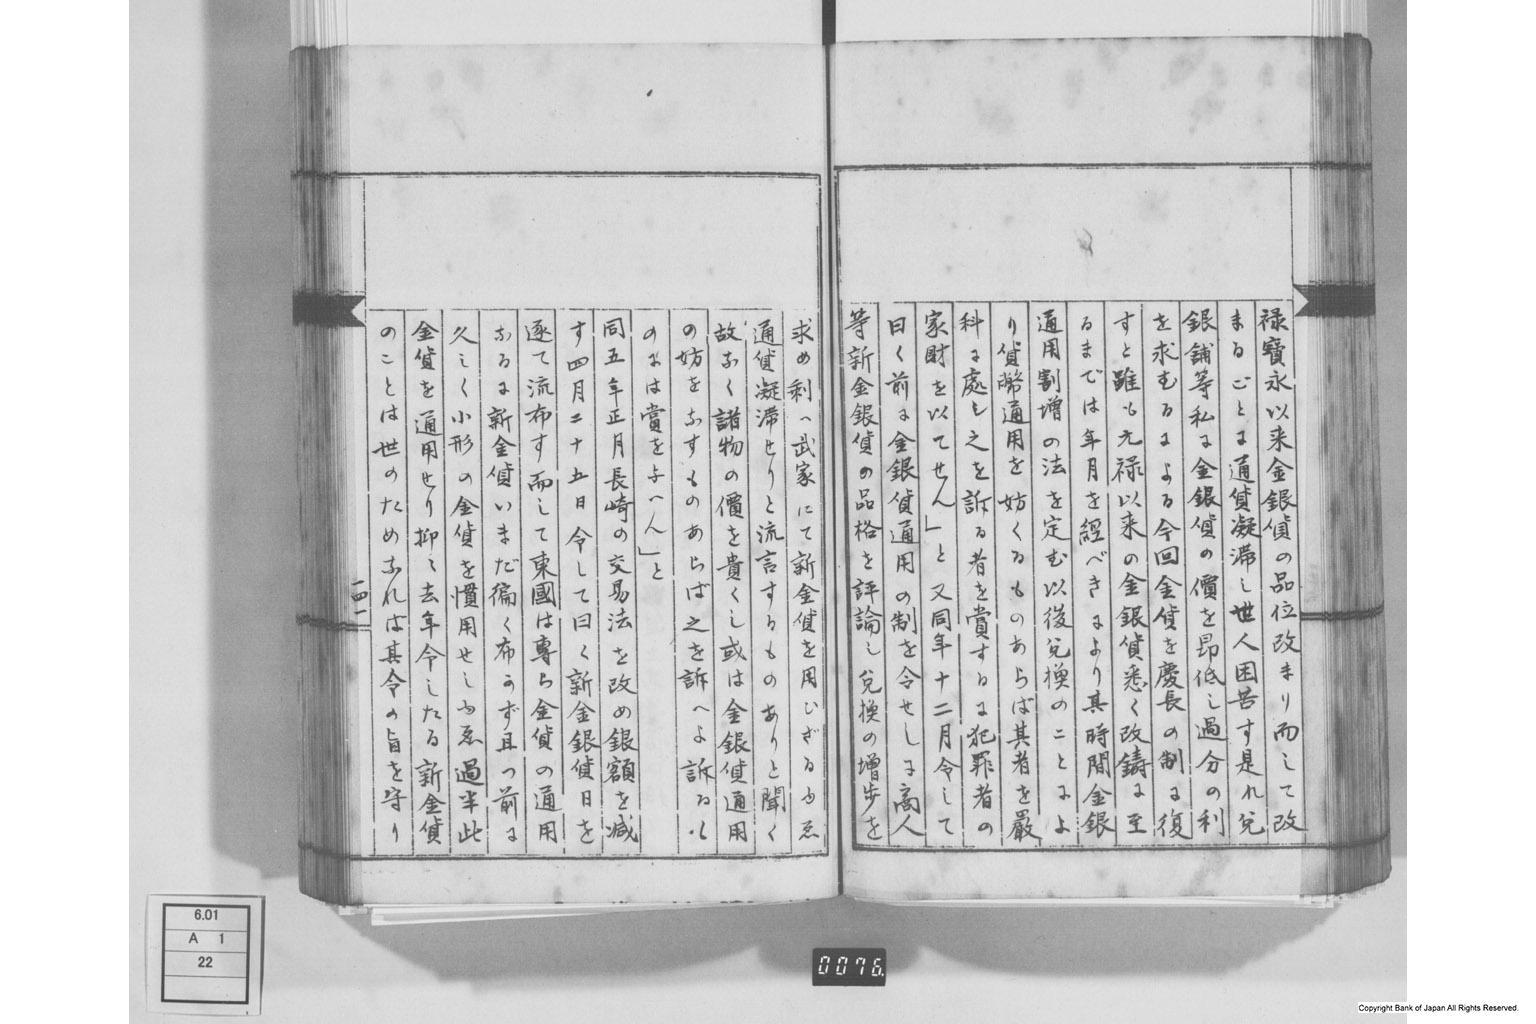 禄寳永以来金銀貨の品位改まり而して改
まるごとに通貨凝滞し世人困苦す是れ兌
銀舗等私に金銀貨の價を昂低し過分の利
を求むるによる今回金貨を慶長の制に復
すと雖も元禄以来の金銀貨悉く改鋳に至
るまでは年月を經べきにより其時間金銀
通用割増の法を定む以後兌換のことによ
り貨幣通用を妨くるものあらば其者を嚴
科に處し之を訴る者を賞するに犯罪者の
家財を以てせん」と又同年十二月令して
曰く前に金銀貨通用の制を令せしに商人
等新金銀貨の品格を評論し兌換の增歩を
求め剰へ武家にて新金貨を用ひざるゆゑ
通貨凝滞せりと流言するものありと聞く
故なく諸物の價を貴くし或は金銀貨通用
の妨をなすものあらば之を訴へよ訴るも
のには賞を与へん」と
同五年正月長崎の交易法を改め銀額を減
す四月二十五日令して曰く新金銀貨日を
逐て流布す而して東國は專ら金貨の通用
なるに新金貨いまだ徧く布かず且つ前に
久しく小形の金貨を慣用せしゆゑ過半此
金貨を通用せり抑〻去年令したる新金貨
のことは世のためなれは其令の旨を守り
一四一
6.01
A 1
22
0076.
Copyright Bank of Japan All Rights Reserved.